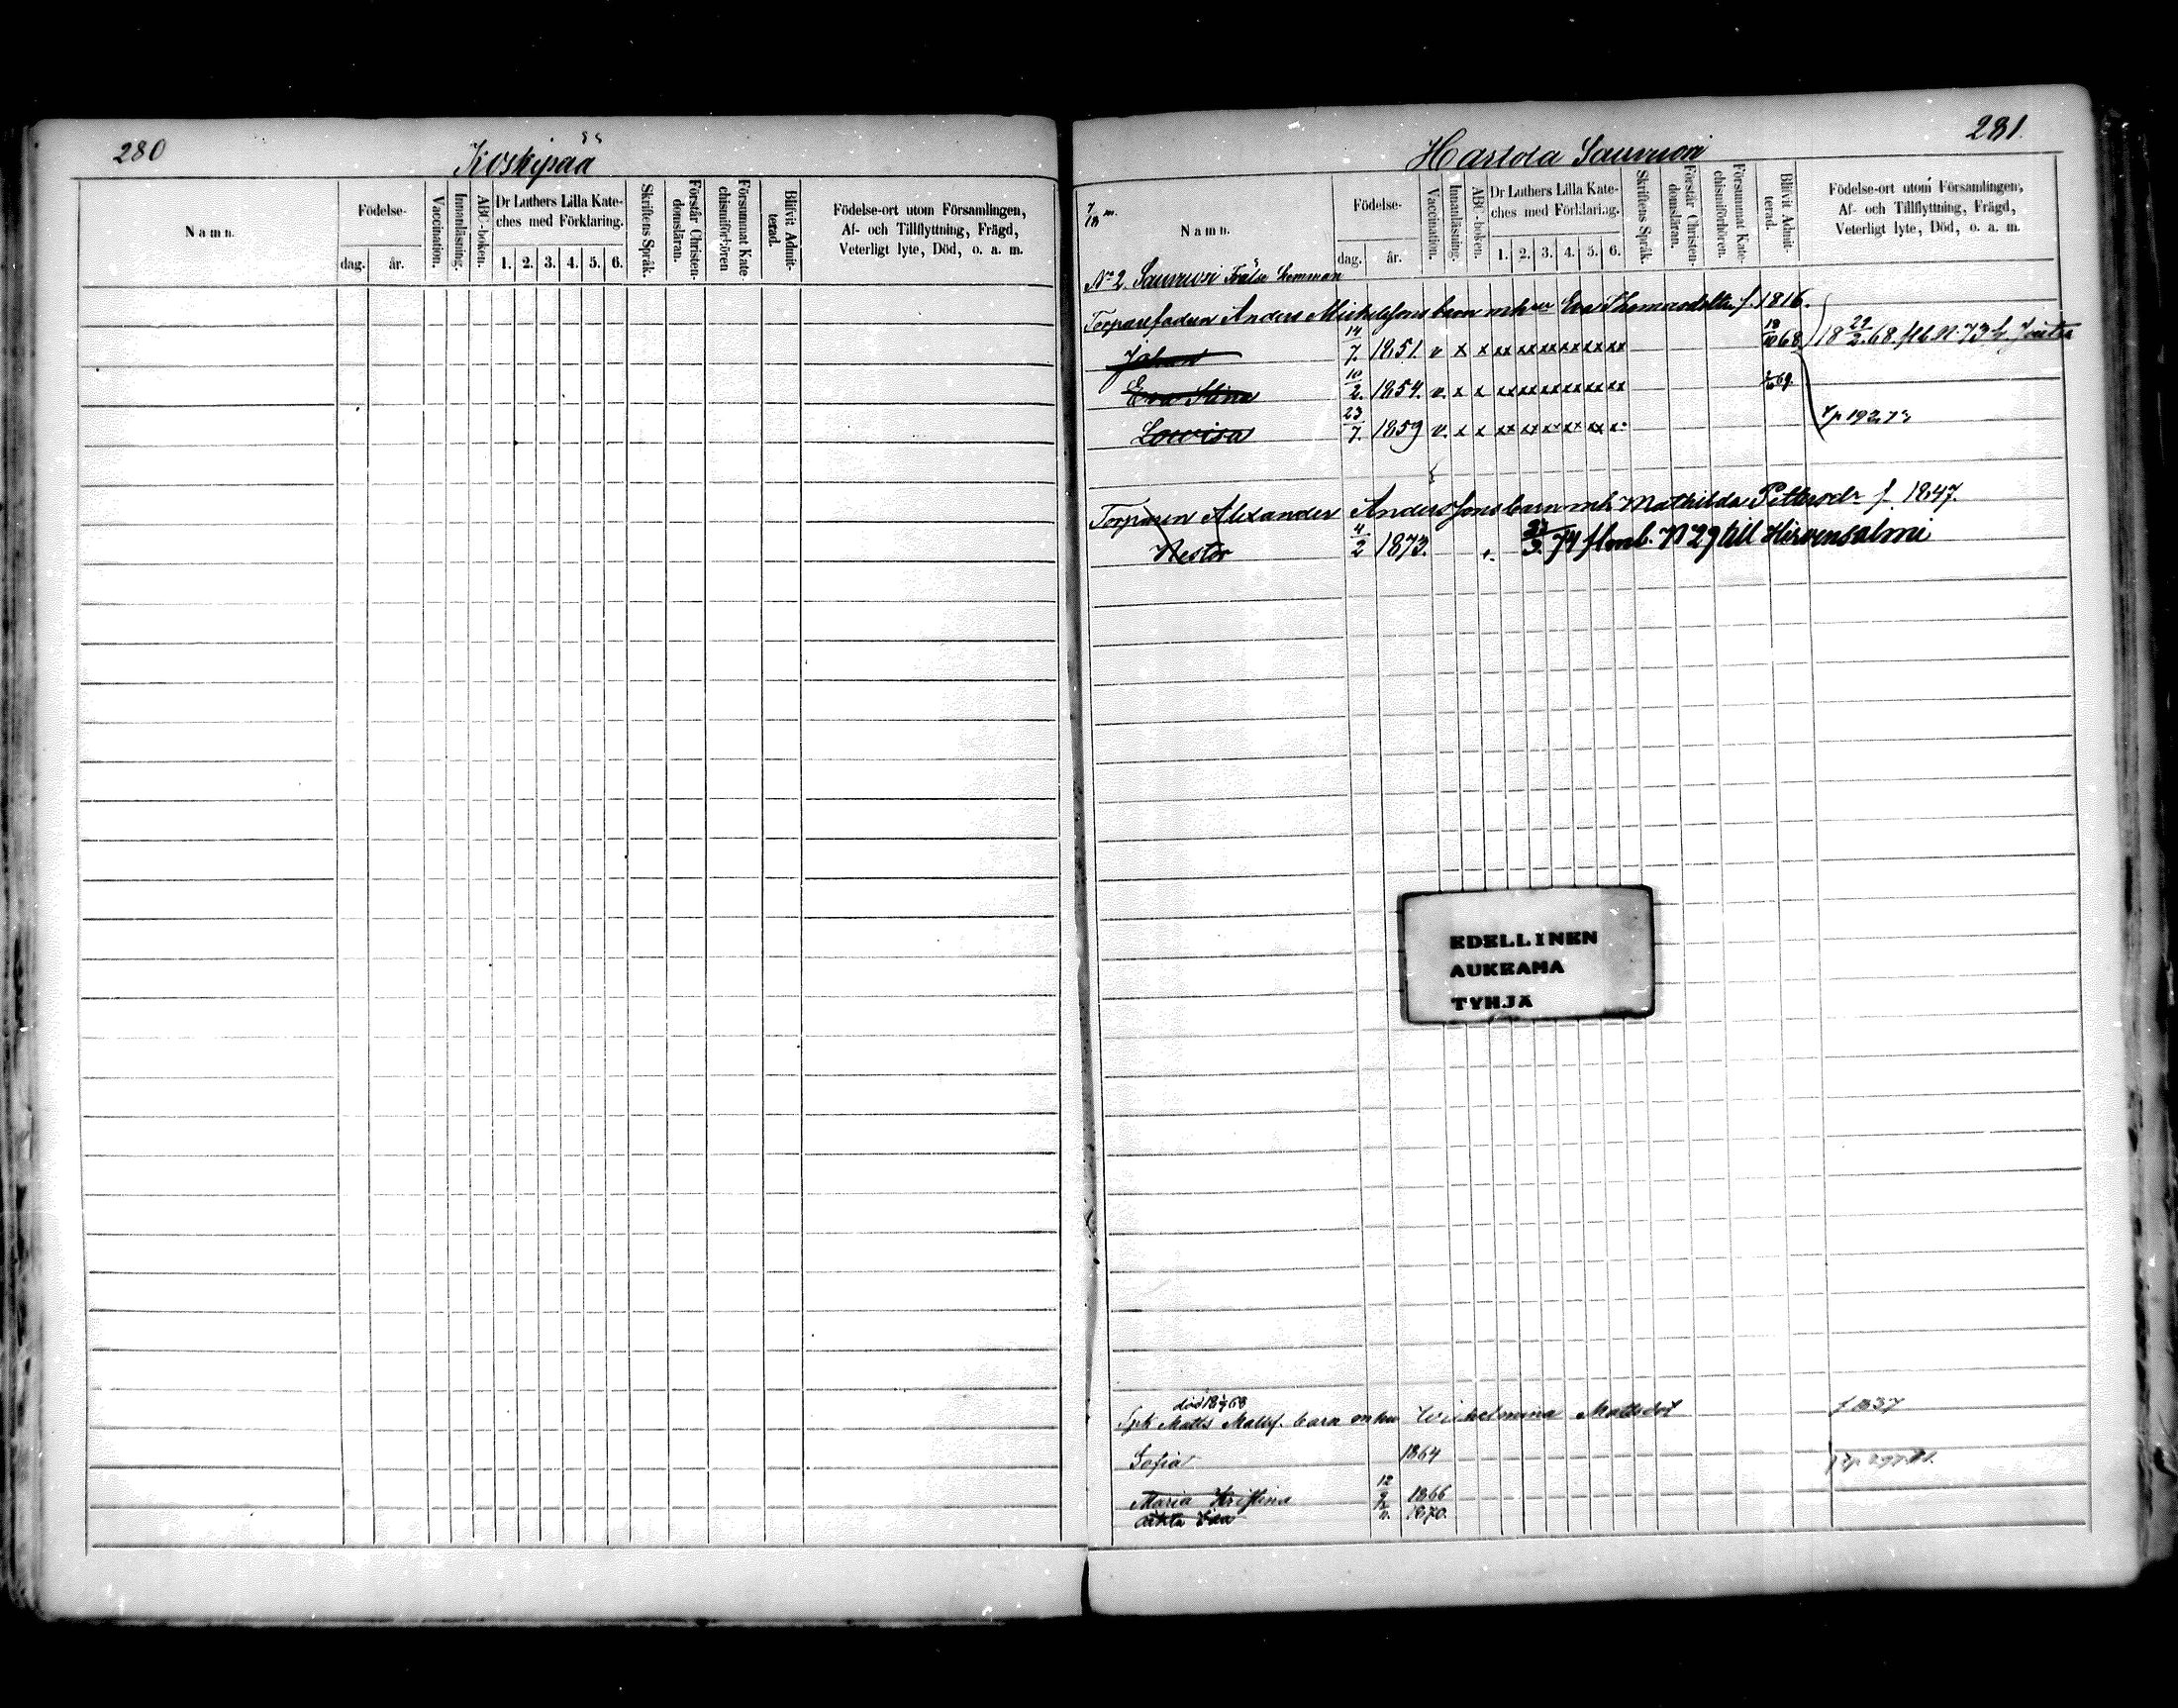 280
Koskipää
Namn.
Födelse-
dag.
år.
Vaccination.
Innanläsning.
ABC-boken.
Dr Luthers Lilla Kate-
ches med Förklaring.
1. 2. 3. 4. 5. 6.
Skriftens Språk.
Förstår Christen-
domsläran.
Försummat Kate-
chismiförhören
Blifvit Admit-
terad.
Födelse-ort utom Församlingen,
Af- och Tillflyttning, Frägd,
Veterligt lyte, Död, o. a. m.
281.
Hartola
Namn.
Födelse-
dag.
år.
Vaccination.
Innanläsning.
ABC-boken.
Dr Luthers Lilla Kate-
ches med Förklaring.
1. 2. 3. 4. 5. 6.
Skriftens Språk.
Förstår Christen-
domsläran.
Försummat Kate-
chismiförhören.
Blifvit Admit-
terad.
Födelse-ort utom Församlingen,
Af- och Tillflyttning, Frägd,
Veterligt lyte, Död, o. a. m.
No 2
Anders barn Eva f. 1816.
Johan 14/7. 1851. v x x xx xx xx xx xx xx
Eva Stina 10/2. 1854. v x x xx xx xx xx xx xx
Lowisa 23/7. 1859 v. x x xx xx xx xx xx
Torparen Alexander Anderssons barn mh Mathilda f. 1847.
Nestor 4/2 1873. 74 N 29 till Hirvensalmi
EDELLINEN
AUKEAMA
TYHJÄ
Matts Matsf. barn Mattsdot f 1837
Sofia 1864
Maria Kristina 1866
1870.